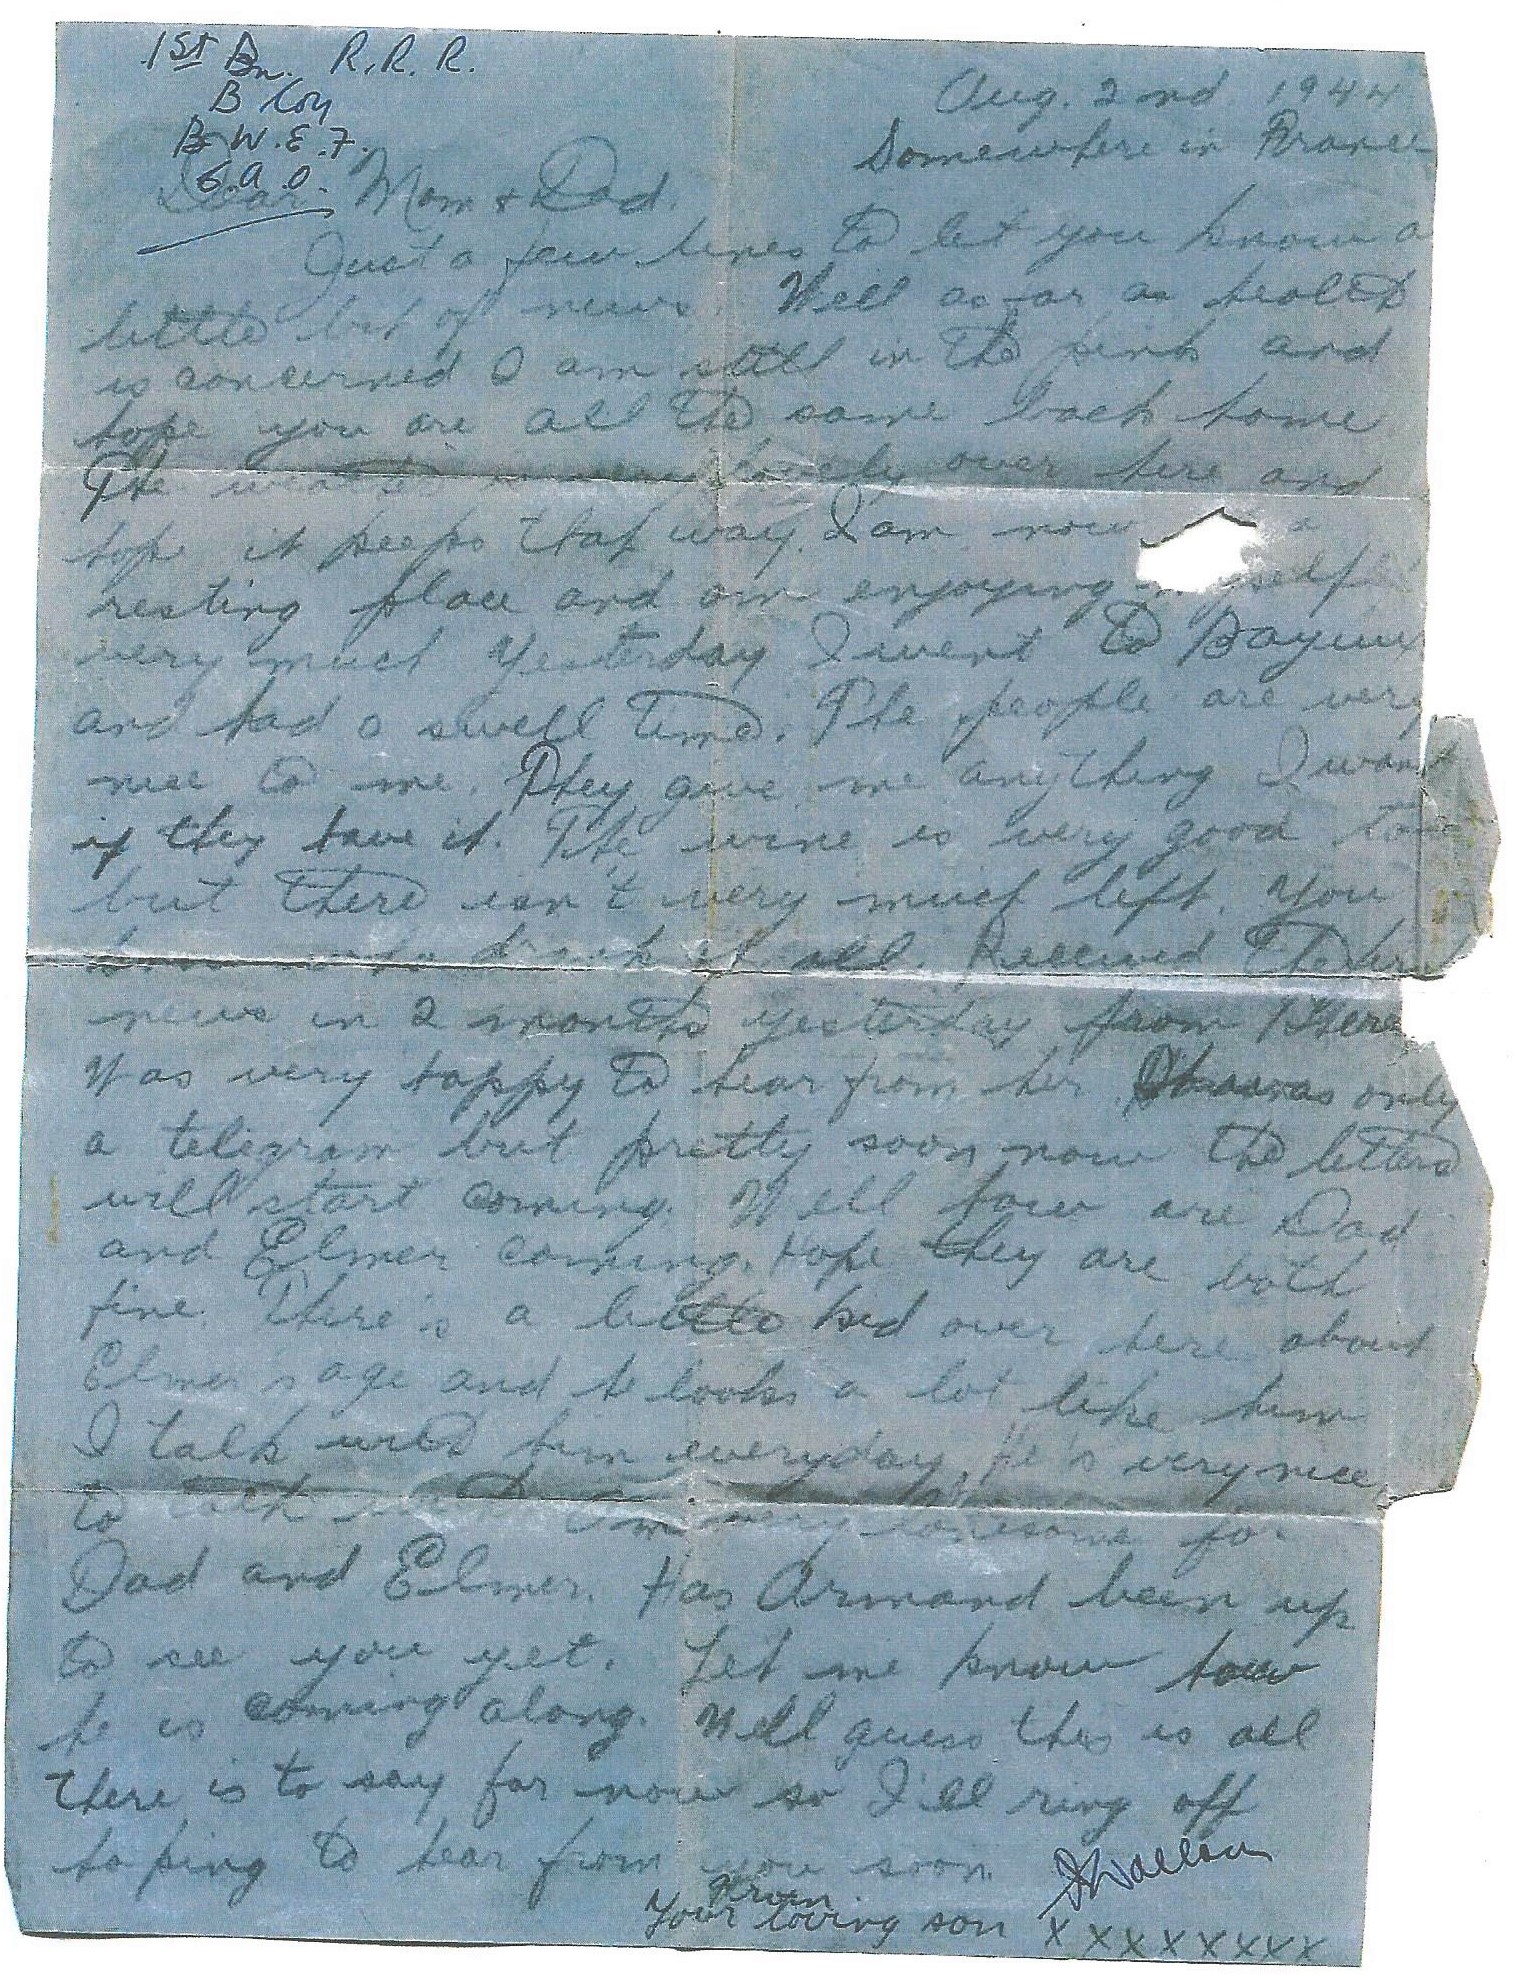 1st Bn. R.R.R.
B Coy
B.W.E.F.
C.A.O.
Aug. 2nd 1944
Somewhere in France
Dear Mom & Dad.
Just a few lines to let you know a
little bit of news. Well as far as health
is concerned I am still in the pink and
hope you are all the same back home
The weather is very lovely over here and
hope it keeps that way. I am now a
resting place and am enjoying myself
very much Yesterday I went to Bayeux
and had a swell time. The people are very
nice to me. They give me anything I want
if they have it. The wine is very good too
but there isn't very much left. You
know who drank it all. Received
news in 2 months yesterday from
Was very happy to hear from her. was only
a telegram but pretty soon now the letters
will start coming. Well how are Dad
and Elmer coming. Hope they are both
fine. There's a little kid over here about
Elmer's age and he looks a lot like him
I talk with him everyday. He's very nice
to talk with I'm very lonesome for
Dad and Elmer. Has Armand been up
to see you yet. Let me know how
he is coming along. Well guess this is all
there is to say for now so I'll ring off
hoping to hear from you soon.
Your loving son
x x x x x x x x